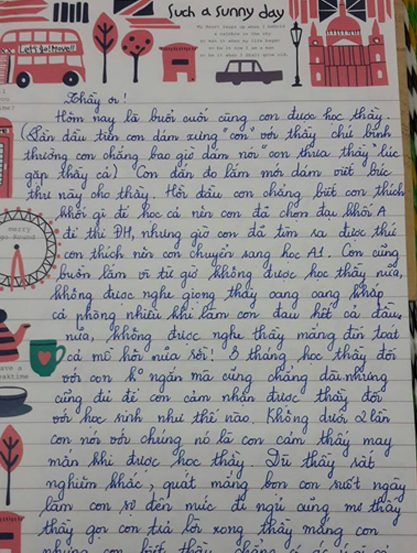 Such a sunny day
My heart leaps up when I behold
a rainbow in the sky
so was it when my life began
so be it when I shall grow old,
Let's go! Move!!
merry
go Round
Have a
teatime
Thầy ơi!
Hôm nay là buổi cuối cùng con được học thầy.
(Lần đầu tiên con dám xưng "con" với thầy chứ bình
thường con chẳng bao giờ dám nói "con thưa thầy" lúc
gặp thầy cả) Con đắn đo lắm mới dám viết bức
thư này cho thầy. Hồi đầu con chẳng biết con thích
khối gì để học cả nên con đã chọn đại khối A
để thi ĐH, nhưng giờ con đã tìm ra được thứ
con thích nên con chuyển sang học A1. Con cũng
buồn lắm vì từ giờ không được học thầy nữa,
không được nghe giọng thầy oang oang khắp
cả phòng nhiều khi làm con đau hết cả đầu
nữa, không được nghe thầy mắng đến toát
cả mồ hôi nữa rồi! 8 tháng học thầy đối
với con ko ngắn mà cũng chẳng dài nhưng
cũng đủ để con cảm nhận được thầy đối
với học sinh như thế nào. Không dưới 2 lần
con nói với chúng nó là con cảm thấy may
mắn khi được học thầy. Dù thầy rất
nghiêm khắc, quát mắng bọn con suốt ngày
làm con sợ đến mức đi ngủ cũng mơ thấy
thầy gọi con trả lời xong thầy mắng con
nhưng con biết thầy chẳng